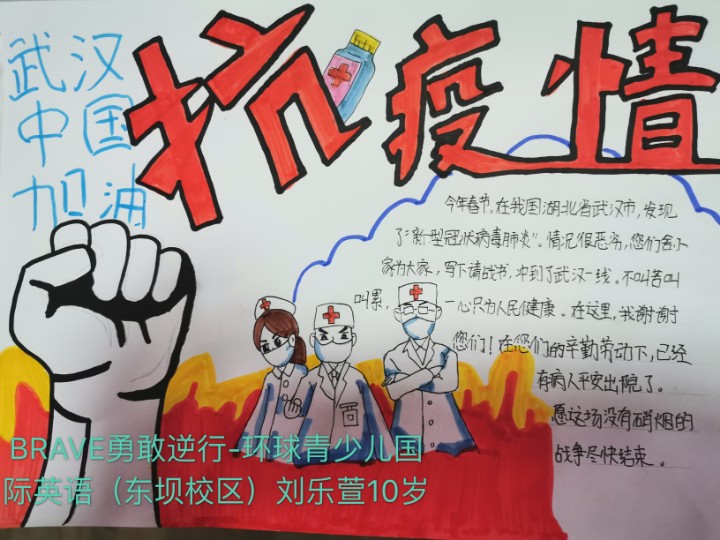 抗疫情
武汉
中国
加油
今年春节,在我国湖北省武汉市,发现
了“新型冠状病毒肺炎”。情况很恶劣,您们舍小
家为大家,写下请战书,冲到了武汉一线,不叫苦叫
叫累,一心只为人民健康。在这里,我谢谢
您们!在您们的辛勤劳动下,已经
有病人平安出院了。
愿这场没有硝烟的
战争尽快结束。
BRAVE勇敢逆行-环球青少儿国
际英语(东坝校区)刘乐萱10岁